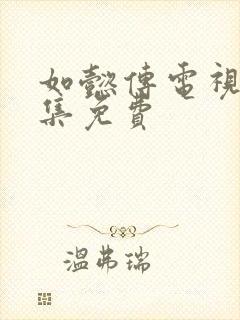 如懿傳電視
集免費
溫弗瑞